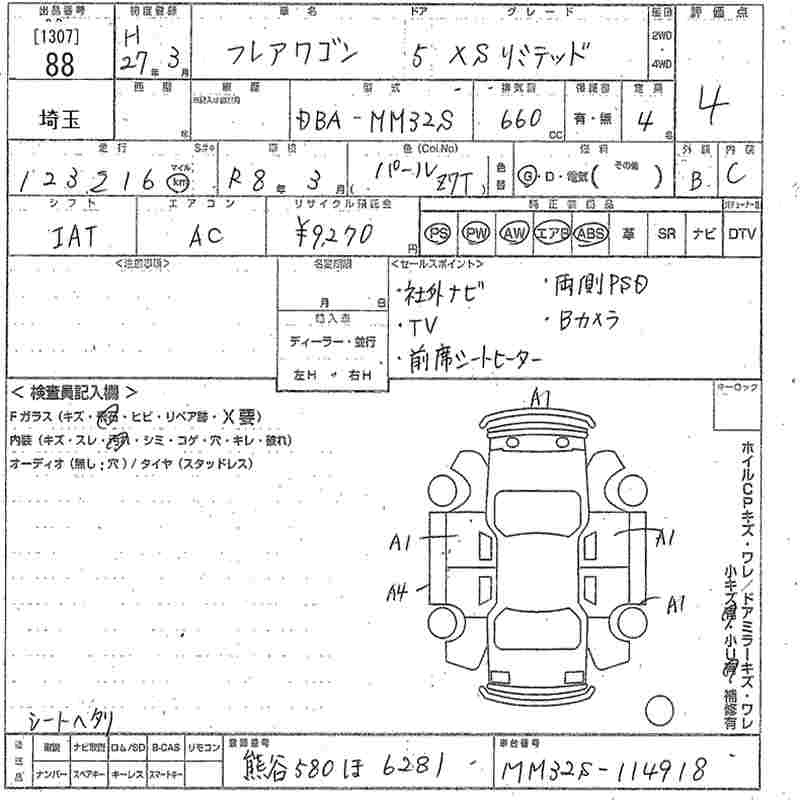 出品番号 初度登録 車名 ドア グレード 駆動 評価点
[1307] 88 H 27年 3月 フレアワゴン 5 XSリミテッド 2WD 4WD 4
埼玉 車歴 型式 排気量 定員
年 DBA-MM32S 660 CC 有・無 4名
走行 車検 色(Col.No) 色替 燃料 外装 内装
123216 マイル km R8年 3月 パール( Z7T ) G・D・電気( その他 ) B C
シフト エアコン リサイクル預託金 純正装備品
IAT AC ¥9,270円 PS PW AW エアB ABS 革 SR ナビ DTV
<注意事項> 名変期限 <セールスポイント>
月 日
・社外ナビ ・両側PSD
・TV ・Bカメラ
・前席シートヒーター
輸入車
ディーラー・並行
左H 右H
<検査員記入欄> キーロック
Fガラス(キズ・飛石・ヒビ・リペア跡・X要)
内装(キズ・スレ・汚れ・シミ・コゲ・穴・キレ・破れ)
オーディオ(無し:穴)/タイヤ(スタッドレス)
A1
A1 A1
A4 A1
ホイルCPキズ・ワレ/ドアミラーキズ・ワレ
小キズ有・小U有・補修有
シートヘタリ
後送品 取説 ナビ取説 ロム/SD B-CAS リモコン 登録番号 車台番号
ナンバー スペアキー キーレス スマートキー 熊谷580ほ6281 MM32S-114918